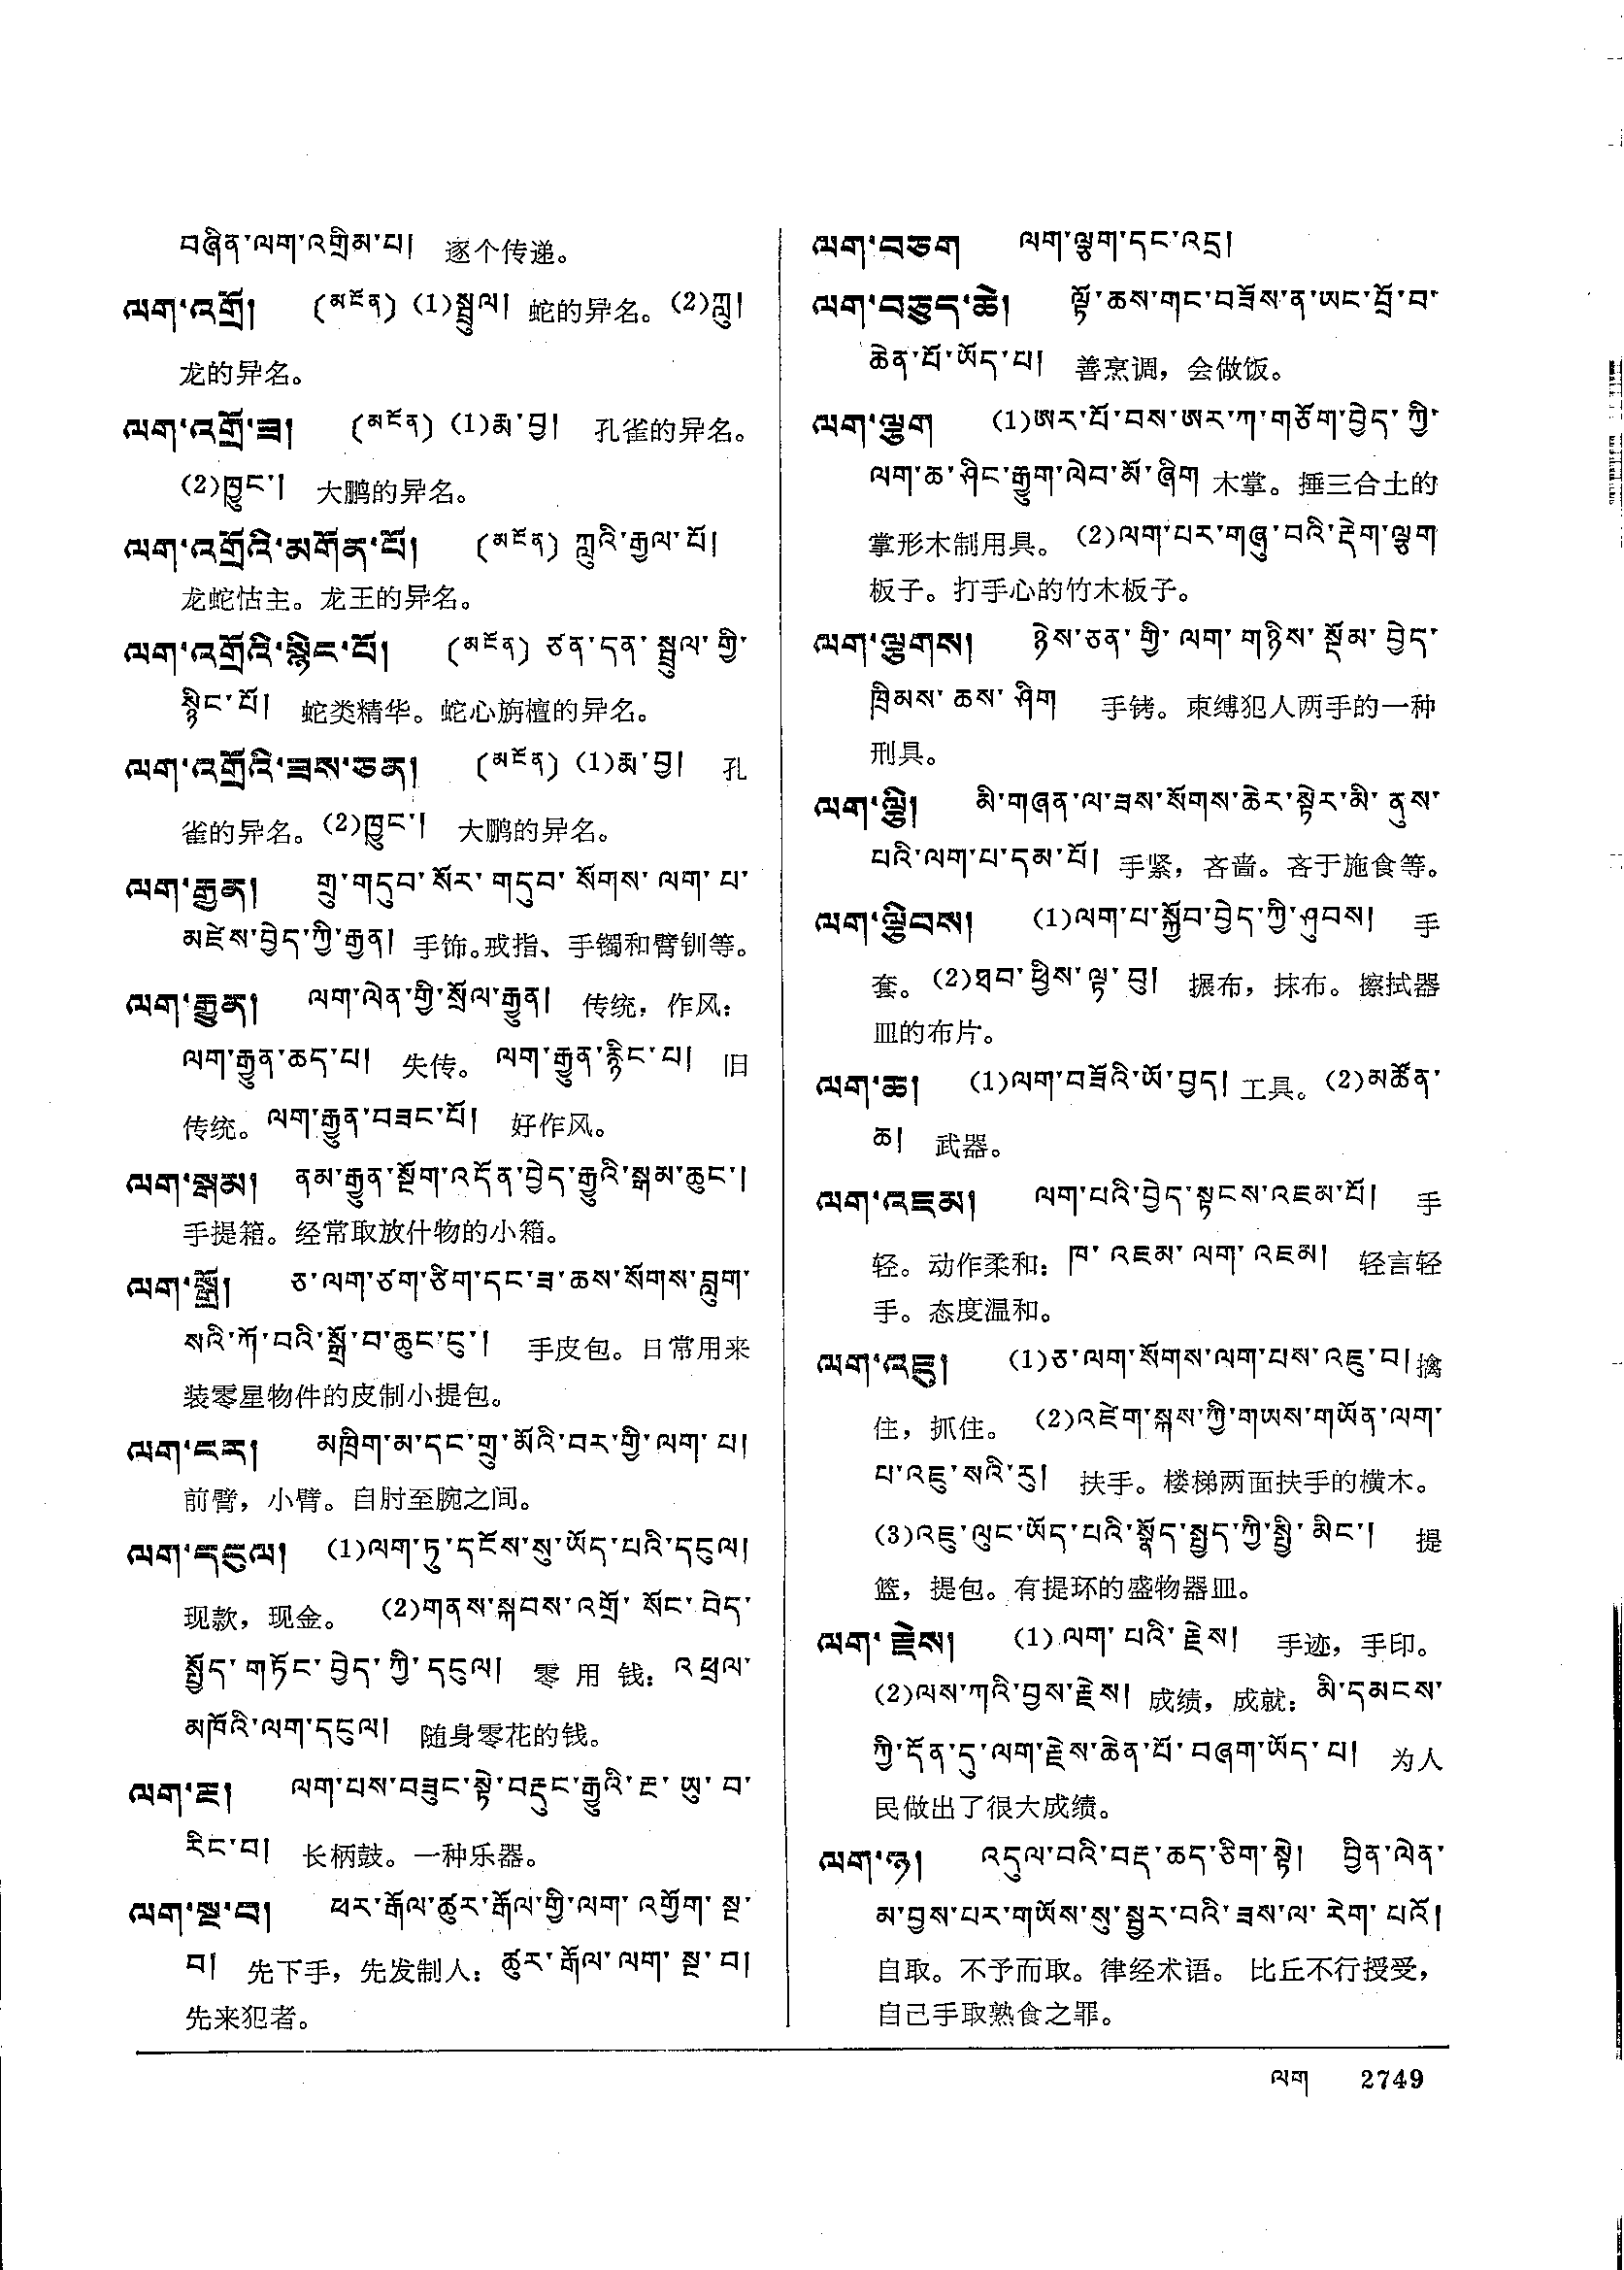 བཞིན་ལག་འགྲིམ་པ། 逐个传递。
ལག་འགྲོ། (མངོན) (1)སྦྲུལ། 蛇的异名。(2)ཀླུ།
龙的异名。
ལག་འགྲོ་ཟ། (མངོན) (1)རྨ་བྱ། 孔雀的异名。
(2)ཁྱུང་། 大鹏的异名。
ལག་འགྲོའི་མགོན་པོ། (མངོན) ཀླུའི་རྒྱལ་པོ།
龙蛇怙主。龙王的异名。
ལག་འགྲོའི་སྙིང་པོ། (མངོན) ཙན་དན་སྦྲུལ་གྱི་
སྙིང་པོ། 蛇类精华。蛇心旃檀的异名。
ལག་འགྲོའི་ཟས་ཅན། (མངོན) (1)རྨ་བྱ། 孔
雀的异名。(2)ཁྱུང་། 大鹏的异名。
ལག་རྒྱན། གྲུ་གདུབ་སོར་གདུབ་སོགས་ལག་པ་
མཛེས་བྱེད་ཀྱི་རྒྱན། 手饰。戒指、手镯和臂钏等。
ལག་རྒྱུན། ལག་ལེན་གྱི་སྲོལ་རྒྱུན། 传统，作风：
ལག་རྒྱུན་ཆད་པ། 失传。 ལག་རྒྱུན་རྙིང་པ། 旧
传统。ལག་རྒྱུན་བཟང་པོ། 好作风。
ལག་སྒམ། ནམ་རྒྱུན་སྔོག་འདོན་བྱེད་རྒྱུའི་སྒམ་ཆུང་།
手提箱。经常取放什物的小箱。
ལག་སྒྲོ། ཅ་ལག་ཙག་ཙིག་དང་ཟ་ཆས་སོགས་བླུག་
སའི་ཀོ་བའི་སྒྲོ་བ་ཆུང་ངུ་། 手皮包。日常用来
装零星物件的皮制小提包。
ལག་ངར། མཁྲིག་མ་དང་གྲུ་མོའི་བར་གྱི་ལག་པ།
前臂，小臂。自肘至腕之间。
ལག་དངུལ། (1)ལག་ཏུ་དངོས་སུ་ཡོད་པའི་དངུལ།
现款，现金。 (2)གནས་སྐབས་འགྲོ་སོང་བེད་
སྤྱོད་གཏོང་བྱེད་ཀྱི་དངུལ། 零用钱：འཕྲལ་
མཁོའི་ལག་དངུལ། 随身零花的钱。
ལག་རྔ། ལག་པས་བཟུང་སྟེ་བརྡུང་རྒྱུའི་རྔ་ཡུ་བ་
རིང་བ། 长柄鼓。一种乐器。
ལག་སྔ་བ། ཕར་རྒོལ་ཚུར་རྒོལ་གྱི་ལག་འགྱོག་སྔ་
བ། 先下手，先发制人：ཚུར་རྒོལ་ལག་སྔ་བ།
先来犯者。
ལག་བཅག ལག་ལྕག་དང་འདྲ།
ལག་བཅུད་ཆེ། ལྟོ་ཆས་གང་བཟོས་ན་ཡང་བྲོ་བ་
ཆེན་པོ་ཡོད་པ། 善烹调，会做饭。
ལག་ལྕག (1)ཨར་པོ་བས་ཨར་ཀ་གཅོག་བྱེད་ཀྱི་
ལག་ཆ་ཤིང་རྒྱུག་ལེབ་མོ་ཞིག 木掌。捶三合土的
掌形木制用具。 (2)ལག་པར་གཞུ་བའི་རྡེག་ལྕག
板子。打手心的竹木板子。
ལག་ལྕགས། ཉེས་ཅན་གྱི་ལག་གཉིས་སྡོམ་བྱེད་
ཁྲིམས་ཆས་ཤིག 手铐。束缚犯人两手的一种
刑具。
ལག་ལྕི། མི་གཞན་ལ་ཟས་སོགས་ཆེར་སྟེར་མི་ནུས་
པའི་ལག་པ་དམ་པོ། 手紧，吝啬。吝于施食等。
ལག་ལྕིབས། (1)ལག་པ་སྐྱོབ་བྱེད་ཀྱི་ཤུབས། 手
套。(2)ཐབ་ཕྱིས་ལྟ་བུ། 搌布，抹布。擦拭器
皿的布片。
ལག་ཆ། (1)ལག་བཟོའི་ཡོ་བྱད། 工具。(2)མཚོན་
ཆ། 武器。
ལག་འཇམ། ལག་པའི་བྱེད་སྟངས་འཇམ་པོ། 手
轻。动作柔和：ཁ་འཇམ་ལག་འཇམ། 轻言轻
手。态度温和。
ལག་འཇུ། (1)ཅ་ལག་སོགས་ལག་པས་འཇུ་བ། 擒
住，抓住。 (2)འཛེག་སྐས་ཀྱི་གཡས་གཡོན་ལག་
པ་འཇུ་སའི་རུ། 扶手。楼梯两面扶手的横木。
(3)འཇུ་ལུང་ཡོད་པའི་སྣོད་སྤྱད་ཀྱི་སྤྱི་མིང་། 提
篮，提包。有提环的盛物器皿。
ལག་རྗེས། (1)ལག་པའི་རྗེས། 手迹，手印。
(2)ལས་ཀའི་བྱས་རྗེས། 成绩，成就：མི་དམངས་
ཀྱི་དོན་དུ་ལག་རྗེས་ཆེན་པོ་བཞག་ཡོད་པ། 为人
民做出了很大成绩。
ལག་ཉ། འདུལ་བའི་བརྡ་ཆད་ཅིག་སྟེ། བྱིན་ལེན་
མ་བྱས་པར་གཡོས་སུ་སྦྱར་བའི་ཟས་ལ་རེག་པའོ།
自取。不予而取。律经术语。 比丘不行授受，
自己手取熟食之罪。
ལག 2749